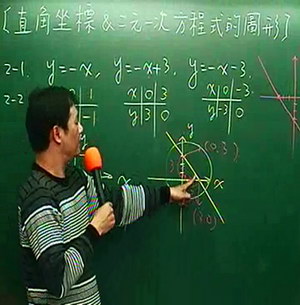 〔直角坐標&二元一次方程式的圖形〕
2-1. y=-x, y=-x+3, y=-x-3.
2-2
1
-1
x 0 3
y 3 0
x 0 -3
y -3 0
y
(0,3)
x
x
(3,0)